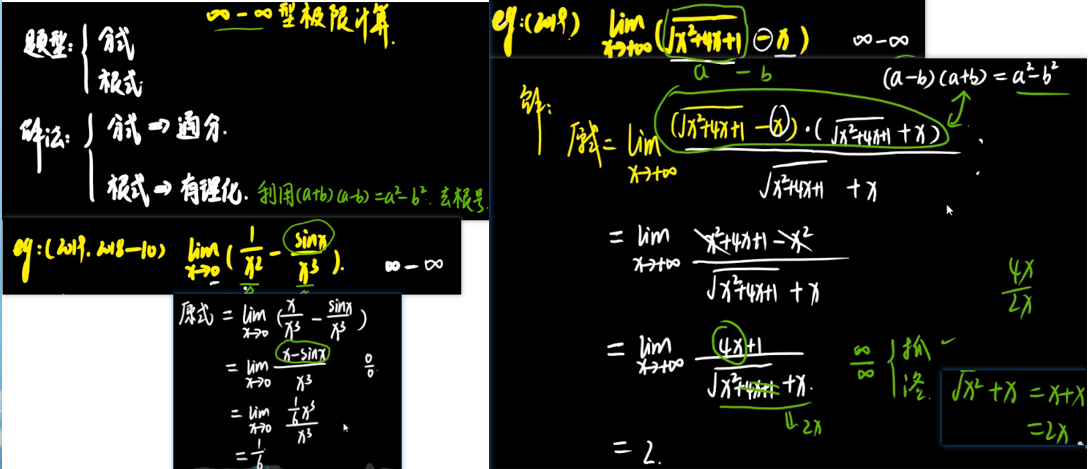 ∞-∞型极限计算.
题型: { 分式
根式
解法: { 分式 ⇒ 通分.
根式 ⇒ 有理化. 利用(a+b)(a-b)=a²-b². 去根号
eg:(2019. 2018-10) lim x→0 (1/x² - sinx/x³). ∞-∞
原式 = lim x→0 (x/x³ - sinx/x³)
= lim x→0 (x-sinx)/x³ 0/0
= lim x→0 (1/6 x³)/x³
= 1/6
eg:(2019) lim x→+∞ (√(x²+4x+1) - x) ∞-∞
a - b
(a-b)(a+b) = a²-b²
解:
原式 = lim x→+∞ (√(x²+4x+1) - x)·(√(x²+4x+1) + x) / (√(x²+4x+1) + x)
= lim x→+∞ (x²+4x+1-x²) / (√(x²+4x+1) + x)
4x/2x
= lim x→+∞ (4x+1) / (√(x²+4x+1) + x). ∞/∞ { 抓 ✓
洛.
⇓ 2x
√x² + x = x+x
= 2x
= 2.